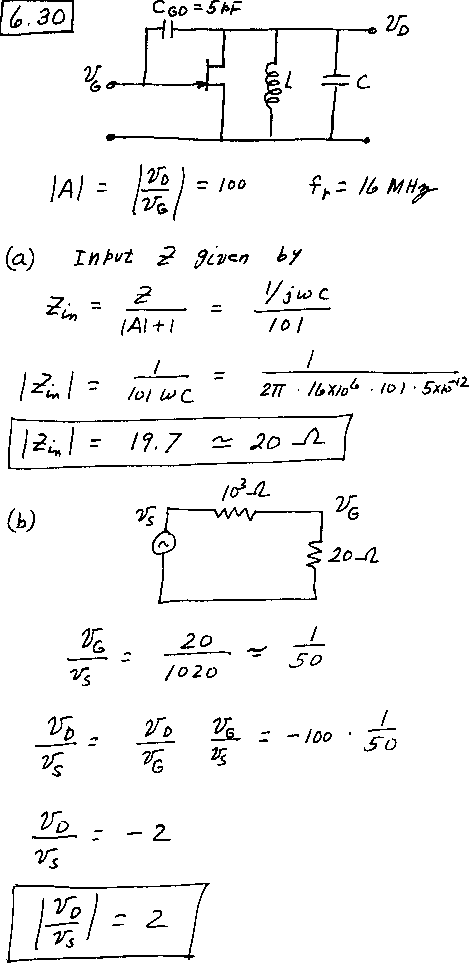 6.30
C_GD = 5 pF
v_D
v_G
L
C
|A| = |v_D/v_G| = 100 f_r = 16 MHz
(a) Input Z given by
Z_in = Z/(|A|+1) = (1/jωC)/101
|Z_in| = 1/(101 ωC) = 1/(2π · 16x10^6 · 101 · 5x10^-12)
|Z_in| = 19.7 ≃ 20 Ω
(b)
10^3 Ω
v_S
v_G
20 Ω
v_G/v_S = 20/1020 ≃ 1/50
v_D/v_S = v_D/v_G v_G/v_S = -100 · 1/50
v_D/v_S = -2
|v_D/v_S| = 2